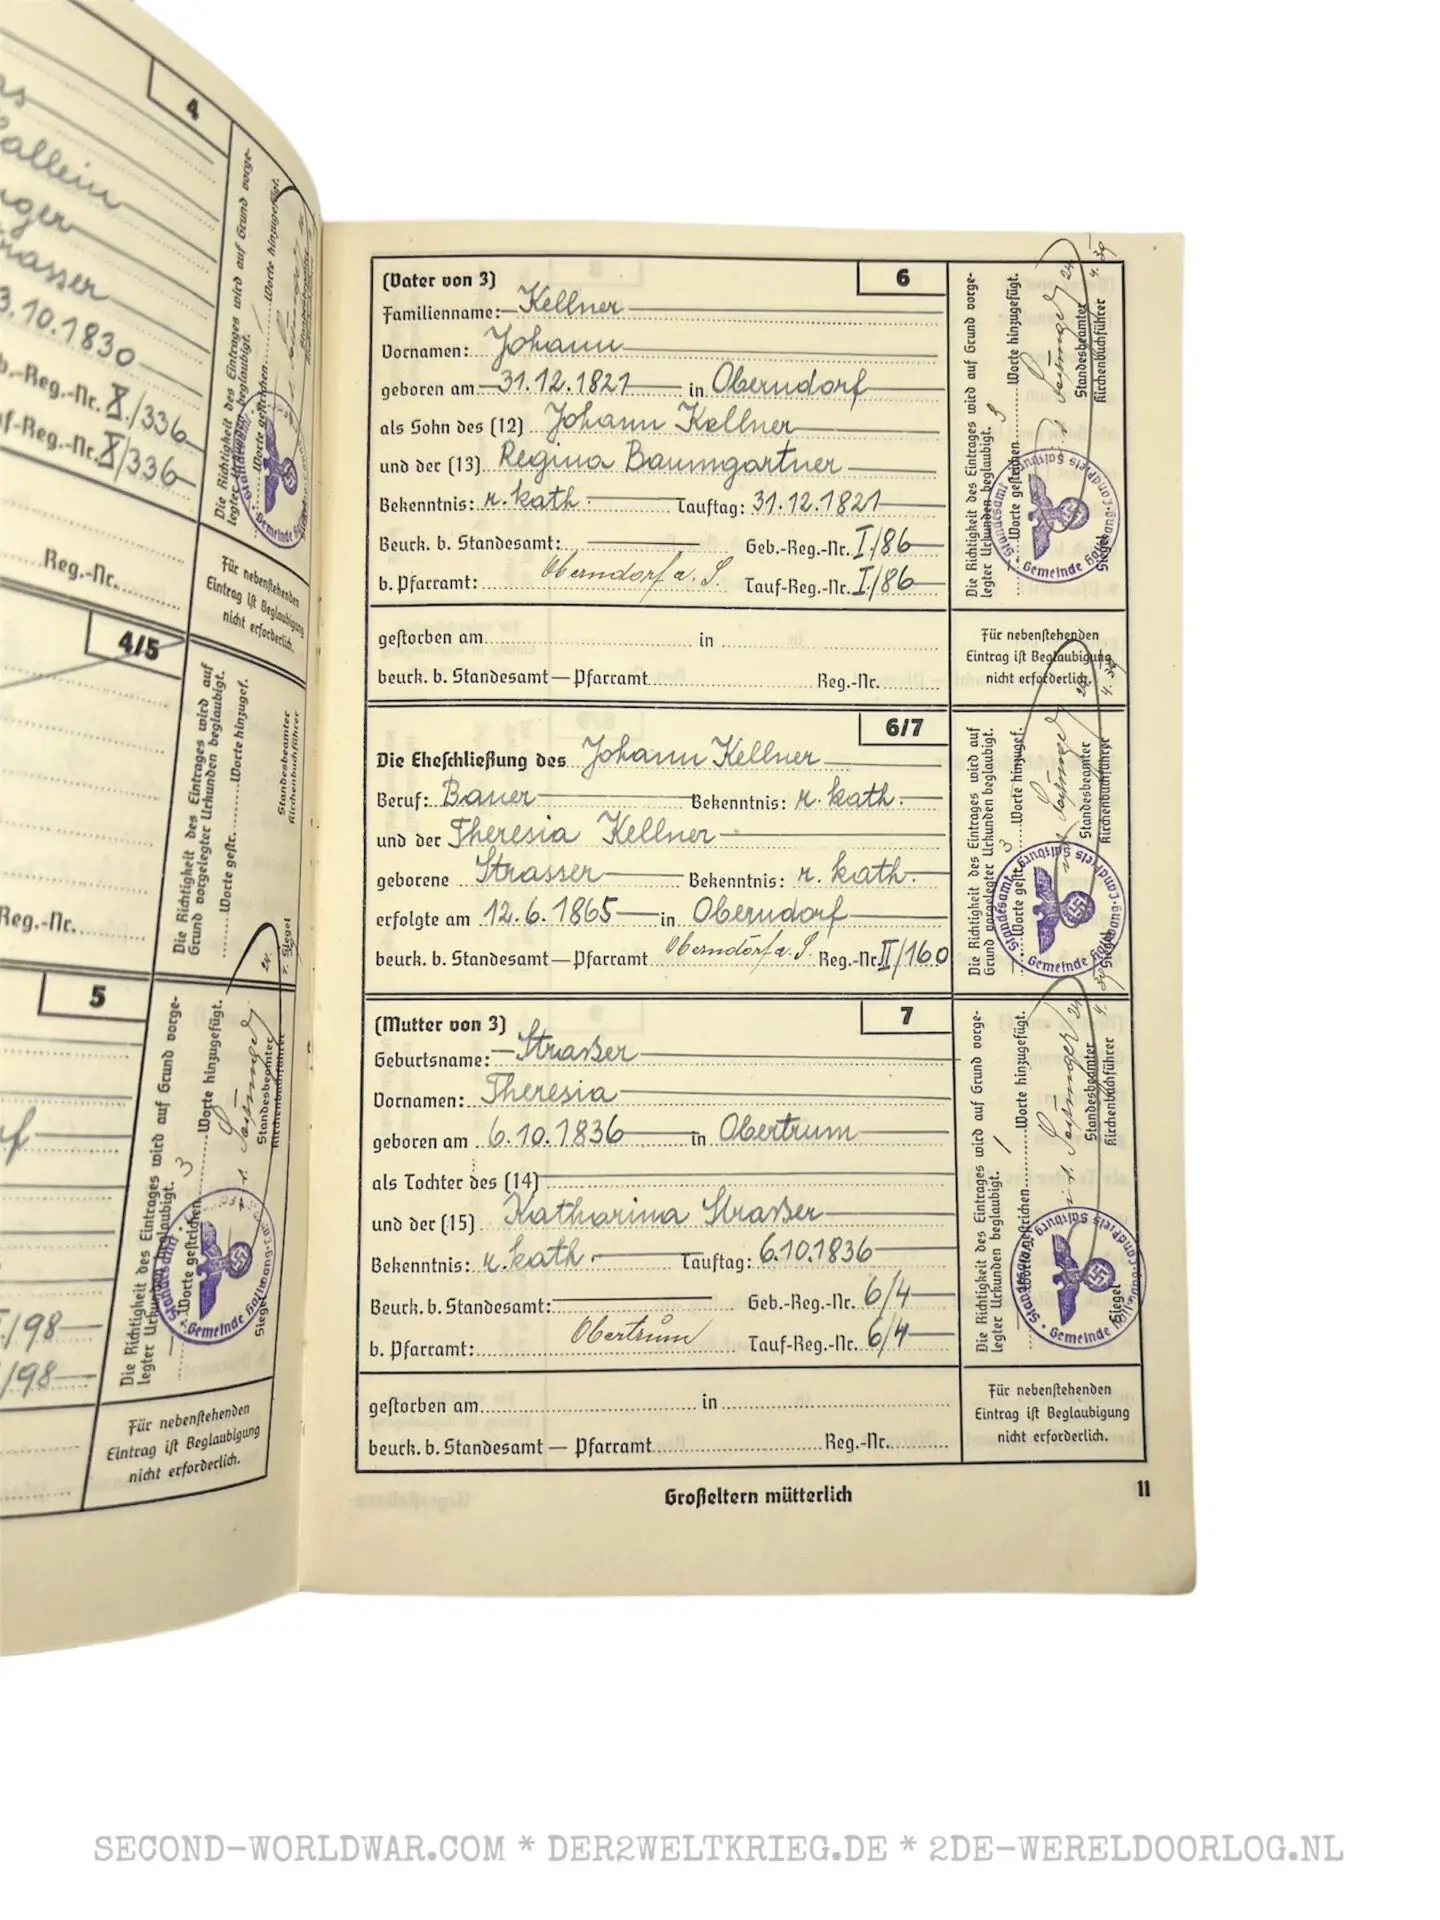 4
Hallein
3.10.1830
b.-Reg.-Nr. X/336
uf-Reg.-Nr. X/336
Die Richtigkeit des Eintrages wird auf Grund vorge-
legter Urkunden beglaubigt.
Worte gestrichen
Worte hinzugefügt.
Reg.-Nr.
Für nebenstehenden
Eintrag ist Beglaubigung
nicht erforderlich.
4/5
Die Richtigkeit des Eintrages wird auf
Grund vorgelegter Urkunden beglaubigt.
Worte gestr. Worte hinzugef.
Standesbeamter
Kirchenbuchführer
Siegel
Reg.-Nr.
5
/98
/98
Die Richtigkeit des Eintrages wird auf Grund vorge-
legter Urkunden beglaubigt. 3
Worte gestrichen Worte hinzugefügt.
Standesbeamter
Kirchenbuchführer
Siegel
Für nebenstehenden
Eintrag ist Beglaubigung
nicht erforderlich.
(Vater von 3) 6
Familienname: Kellner
Vornamen: Johann
geboren am 31.12.1821 in Oberndorf
als Sohn des (12) Johann Kellner
und der (13) Regina Baumgartner
Bekenntnis: r. kath. Tauftag: 31.12.1821
Beurk. b. Standesamt: Geb.-Reg.-Nr. I/86
b. Pfarramt: Oberndorf a. S. Tauf-Reg.-Nr. I/86
gestorben am in
beurk. b. Standesamt — Pfarramt Reg.-Nr.
Die Richtigkeit des Eintrages wird auf Grund vorge-
legter Urkunden beglaubigt. 3
Worte gestrichen Worte hinzugefügt.
24.
4. 39
Standesbeamter
Kirchenbuchführer
Siegel
Standesamt
Gemeinde Hallwang-Landkreis Salzburg
Für nebenstehenden
Eintrag ist Beglaubigung
nicht erforderlich.
6/7
Die Eheschließung des Johann Kellner
Beruf: Bauer Bekenntnis: r. kath.
und der Theresia Kellner
geborene Strasser Bekenntnis: r. kath.
erfolgte am 12.6.1865 in Oberndorf
beurk. b. Standesamt — Pfarramt Oberndorf a. S. Reg.-Nr. II/160
Die Richtigkeit des Eintrages wird auf
Grund vorgelegter Urkunden beglaubigt.
Worte gestr. 3 Worte hinzugef.
24.
4. 39
Standesbeamter
Kirchenbuchführer
Siegel
Standesamt
Gemeinde Hallwang-Landkreis Salzburg
(Mutter von 3) 7
Geburtsname: Straßer
Vornamen: Theresia
geboren am 6.10.1836 in Obertrum
als Tochter des (14)
und der (15) Katharina Straßer
Bekenntnis: r. kath. Tauftag: 6.10.1836
Beurk. b. Standesamt: Geb.-Reg.-Nr. 6/4
b. Pfarramt: Obertrum Tauf-Reg.-Nr. 6/4
gestorben am in
beurk. b. Standesamt — Pfarramt Reg.-Nr.
Die Richtigkeit des Eintrages wird auf Grund vorge-
legter Urkunden beglaubigt. 1
Worte gestrichen Worte hinzugefügt.
24.
4. 39
Standesbeamter
Kirchenbuchführer
Siegel
Standesamt
Gemeinde Hallwang-Landkreis Salzburg
Für nebenstehenden
Eintrag ist Beglaubigung
nicht erforderlich.
Großeltern mütterlich 11
SECOND-WORLDWAR.COM * DER2WELTKRIEG.DE * 2DE-WERELDOORLOG.NL